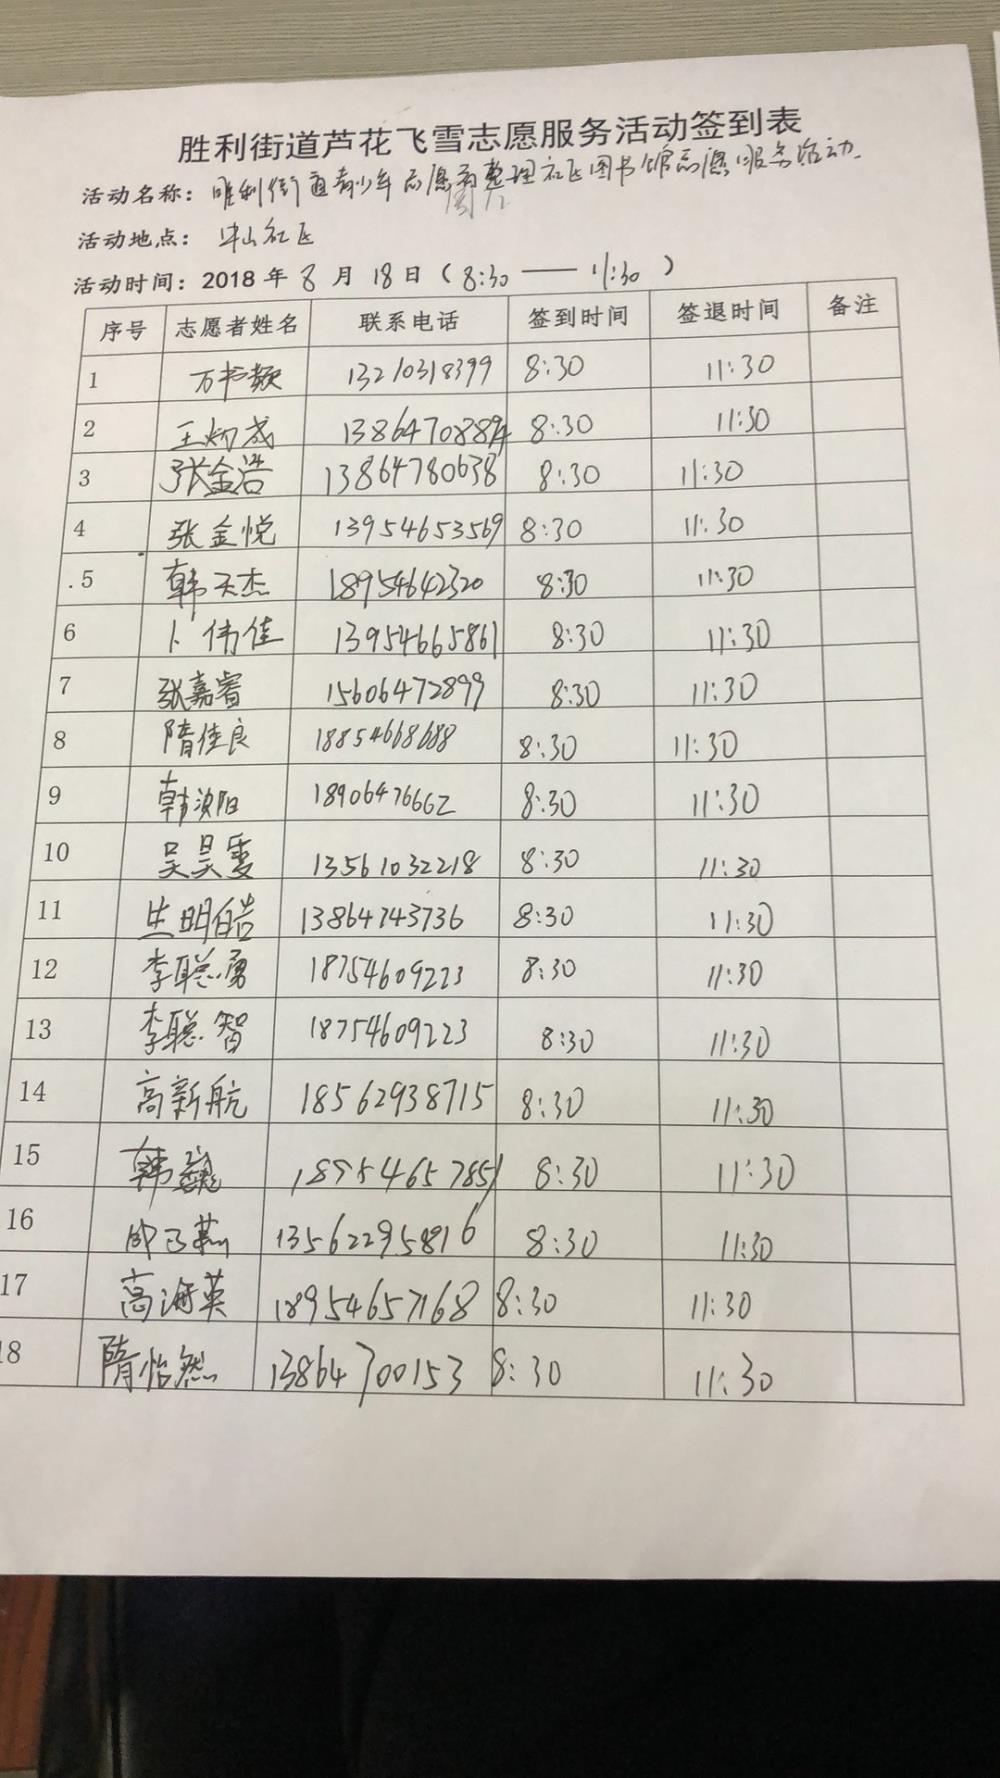 胜利街道芦花飞雪志愿服务活动签到表
活动名称：胜利街道青少年志愿者整理社区图书馆志愿服务活动
活动地点： 社区
活动时间：2018年8月18日（8:30——11:30）
序号 志愿者姓名 联系电话 签到时间 签退时间 备注
1 万书颖 13210318399 8:30 11:30
2 王炳成 8:30 11:30
3 张金浩 13864780638 8:30 11:30
4 张金悦 13954653569 8:30 11:30
5 韩天杰 18954642320 8:30 11:30
6 卜伟佳 13954665861 8:30 11:30
7 张嘉睿 15606472899 8:30 11:30
8 隋佳良 18854668688 8:30 11:30
9 韩汝阳 18906476662 8:30 11:30
10 吴昊雯 13561032218 8:30 11:30
11 生明皓 13864743736 8:30 11:30
12 李聪勇 18754609223 8:30 11:30
13 李聪智 18754609223 8:30 11:30
14 高新航 18562938715 8:30 11:30
15 韩 18954657851 8:30 11:30
16 13562295816 8:30 11:30
17 高海英 18954657168 8:30 11:30
18 隋怡然 13864700153 8:30 11:30